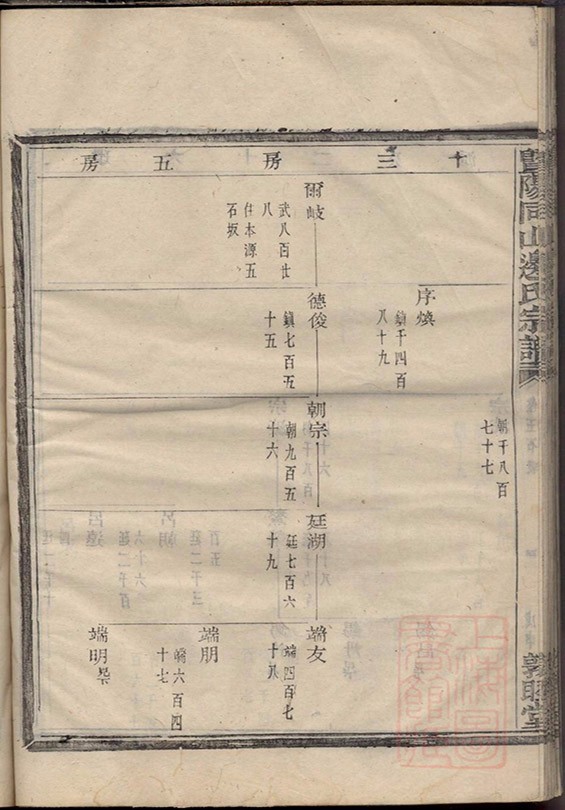 暨陽同山邊氏宗譜
敦睦堂
十三房五房
朝千八百
七十七
序煥
鎮千四百
八十九
爾岐
武八百廿
八
住本源五
石坂
德俊
鎮七百五
十五
朝宗
朝九百五
十六
廷湖
廷七百六
十九
端友
端四百七
十八
端朋
端六百四
十七
端明